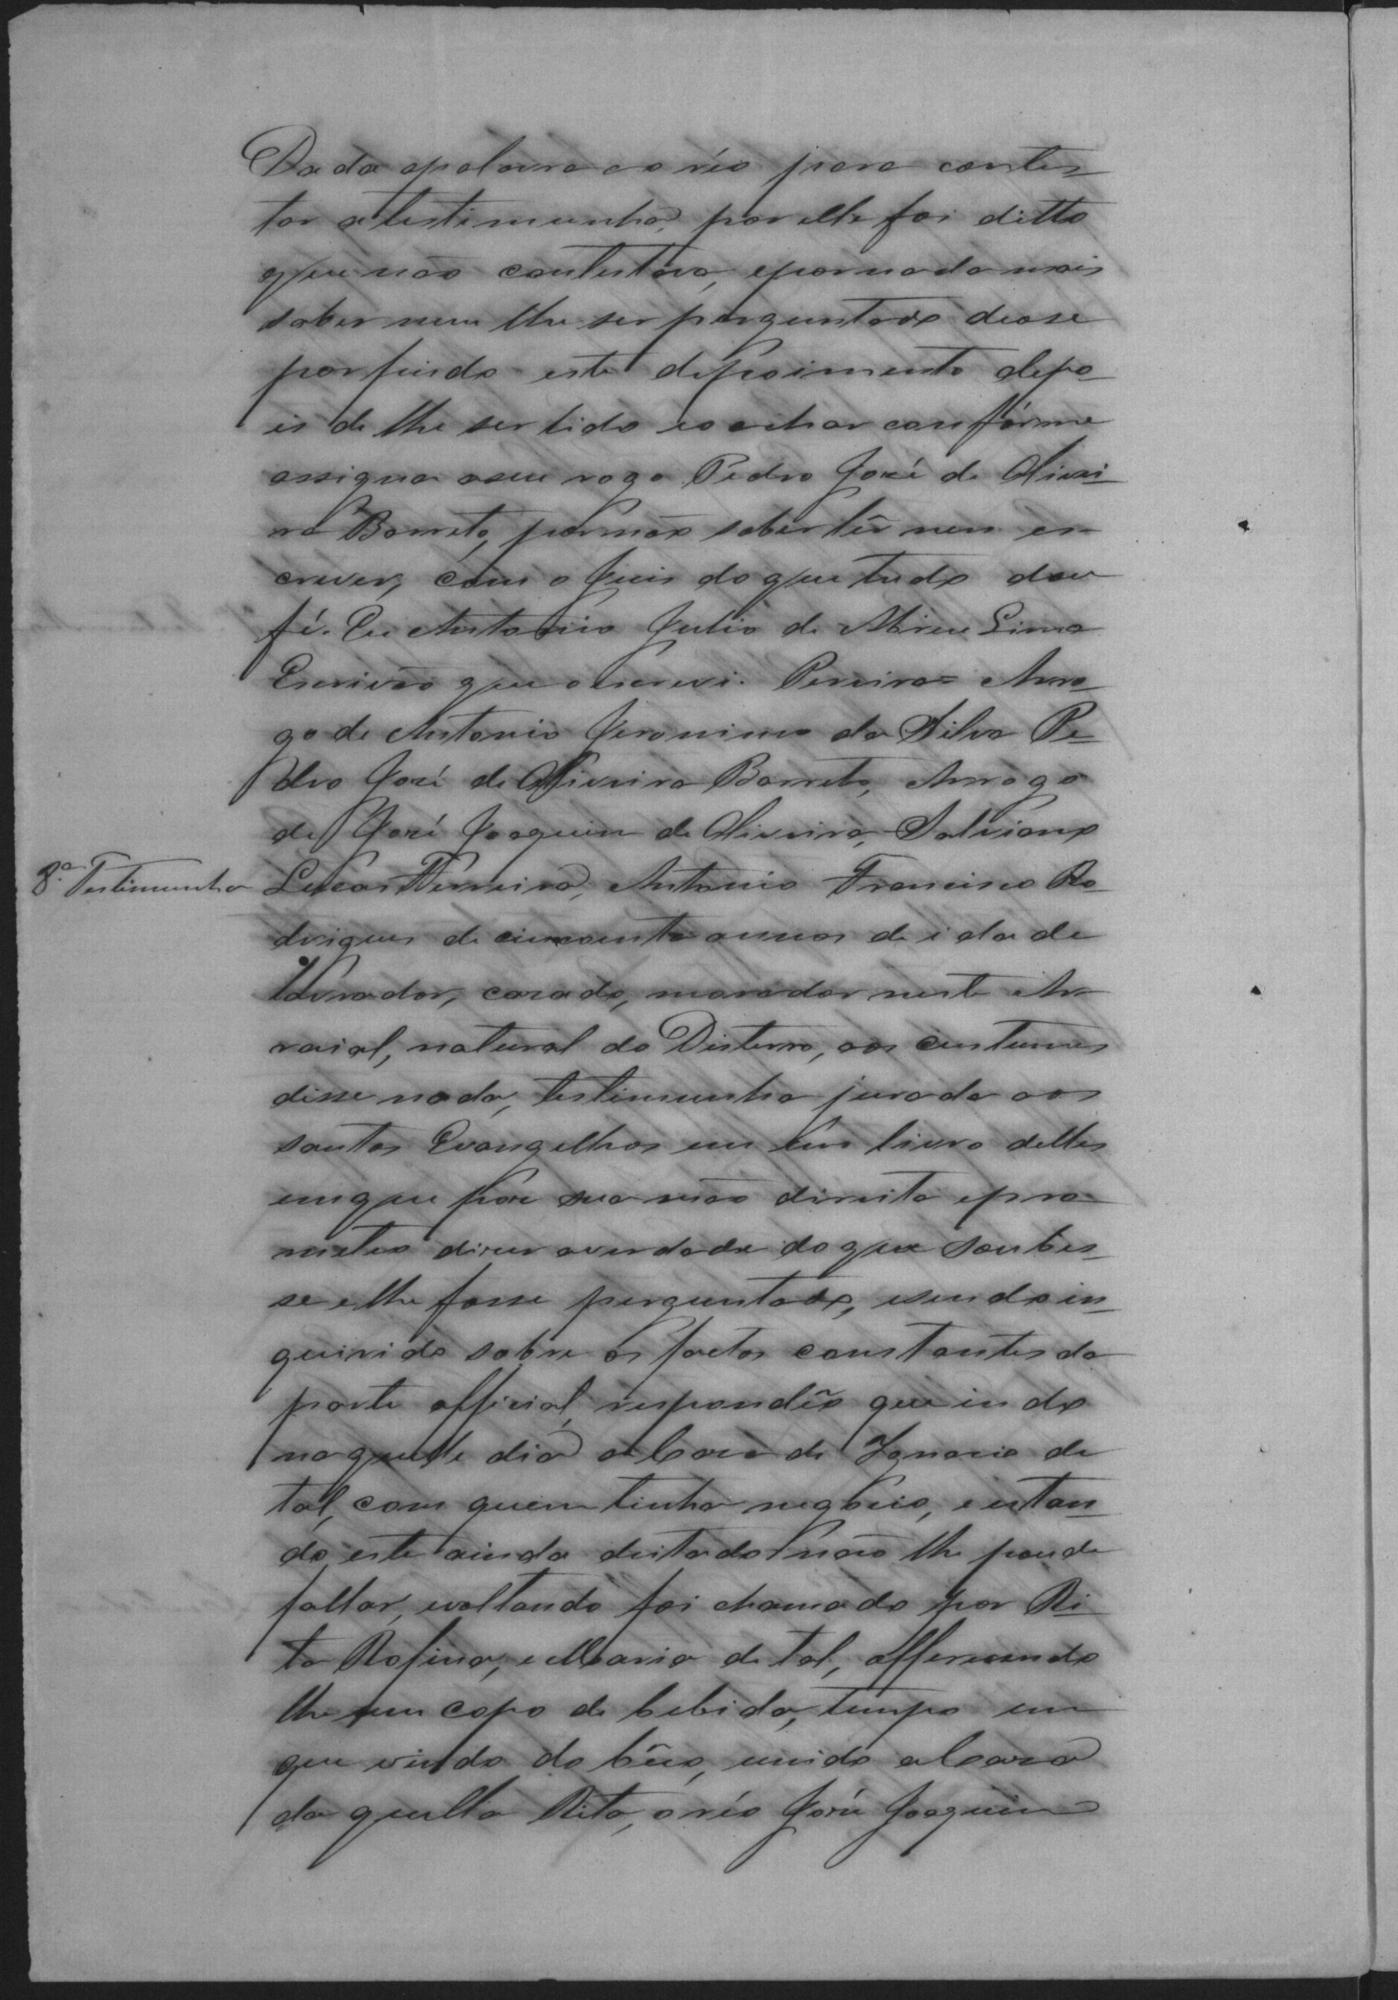 Dada apalavra ao réo para contes-
tar a testimunha, por elle foi ditto
que não contestava, epornada mais
saber nem lhe ser perguntado deose
por findo este depoimento depo-
is de lhe ser lido eo achar confórme
assigna aseu rogo Pedro José de Olivei-
ra Barreto, pornão saber lêr nem es-
crever, com o Juis doque tudo dou
fé. Eu Antonio Julio de Abreu Lima
Escrivão que o escrevi. Pereira = Arro-
go de Antonio Jeronimo da Silva Pe-
dro José de Oliveira Barreto, Arrogo
de José Joaquim de Oliveira, Salviano
8.a Testimunha
Lucas Ferreira, Antonio Francisco Ro-
drigues de cincoenta annos de idade
lavrador, casado, morador neste Ar-
raial, natural do Disterro, aos custumes
disse nada, testimunha jurada aos
santos Evangelhos em um livro delles
emque pôs sua mão direita epro-
meteo diser averdade doque soubes-
se elhe fosse perguntado, esendo in-
querido sobre os factos constantes da
parte official, respondêo que indo
naquelle dia a Casa de Ignacio de
tal, com quem tinha negócio, e estan-
do este ainda deitado não lhe poude
fallar, evoltando foi chamado por Ri-
ta Rofina, e Maria de tal, offerecendo
lhe um copo de bebida, tempo em
que vindo do bêco, unido a Casa
da quella Rita, o réo José Joaquim